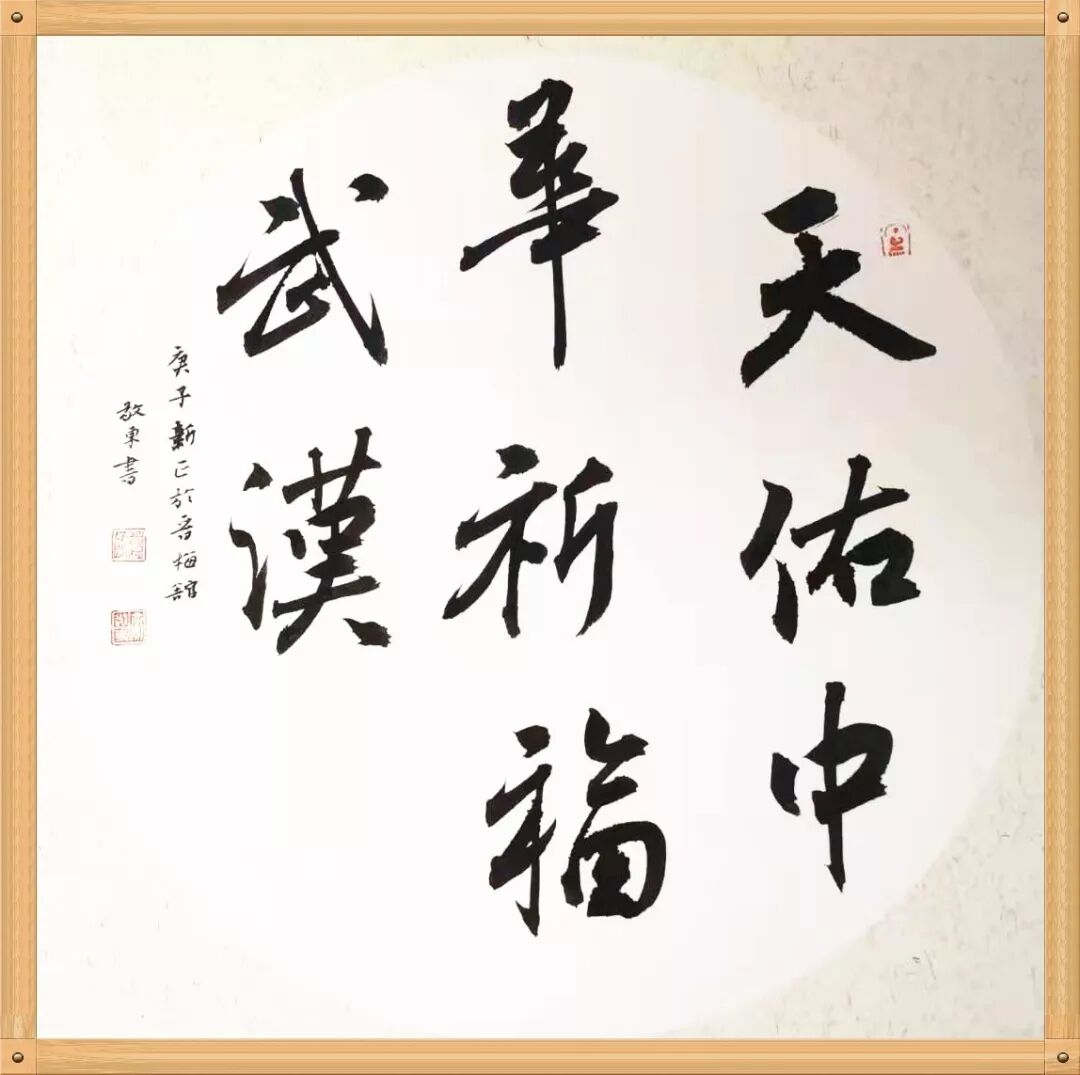 天佑中
華祈福
武漢
庚子新正於晉梅館
敬東書